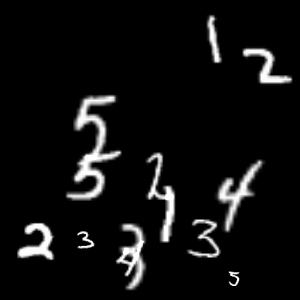 1 2
5
5 2 1 4
2 3 3
5